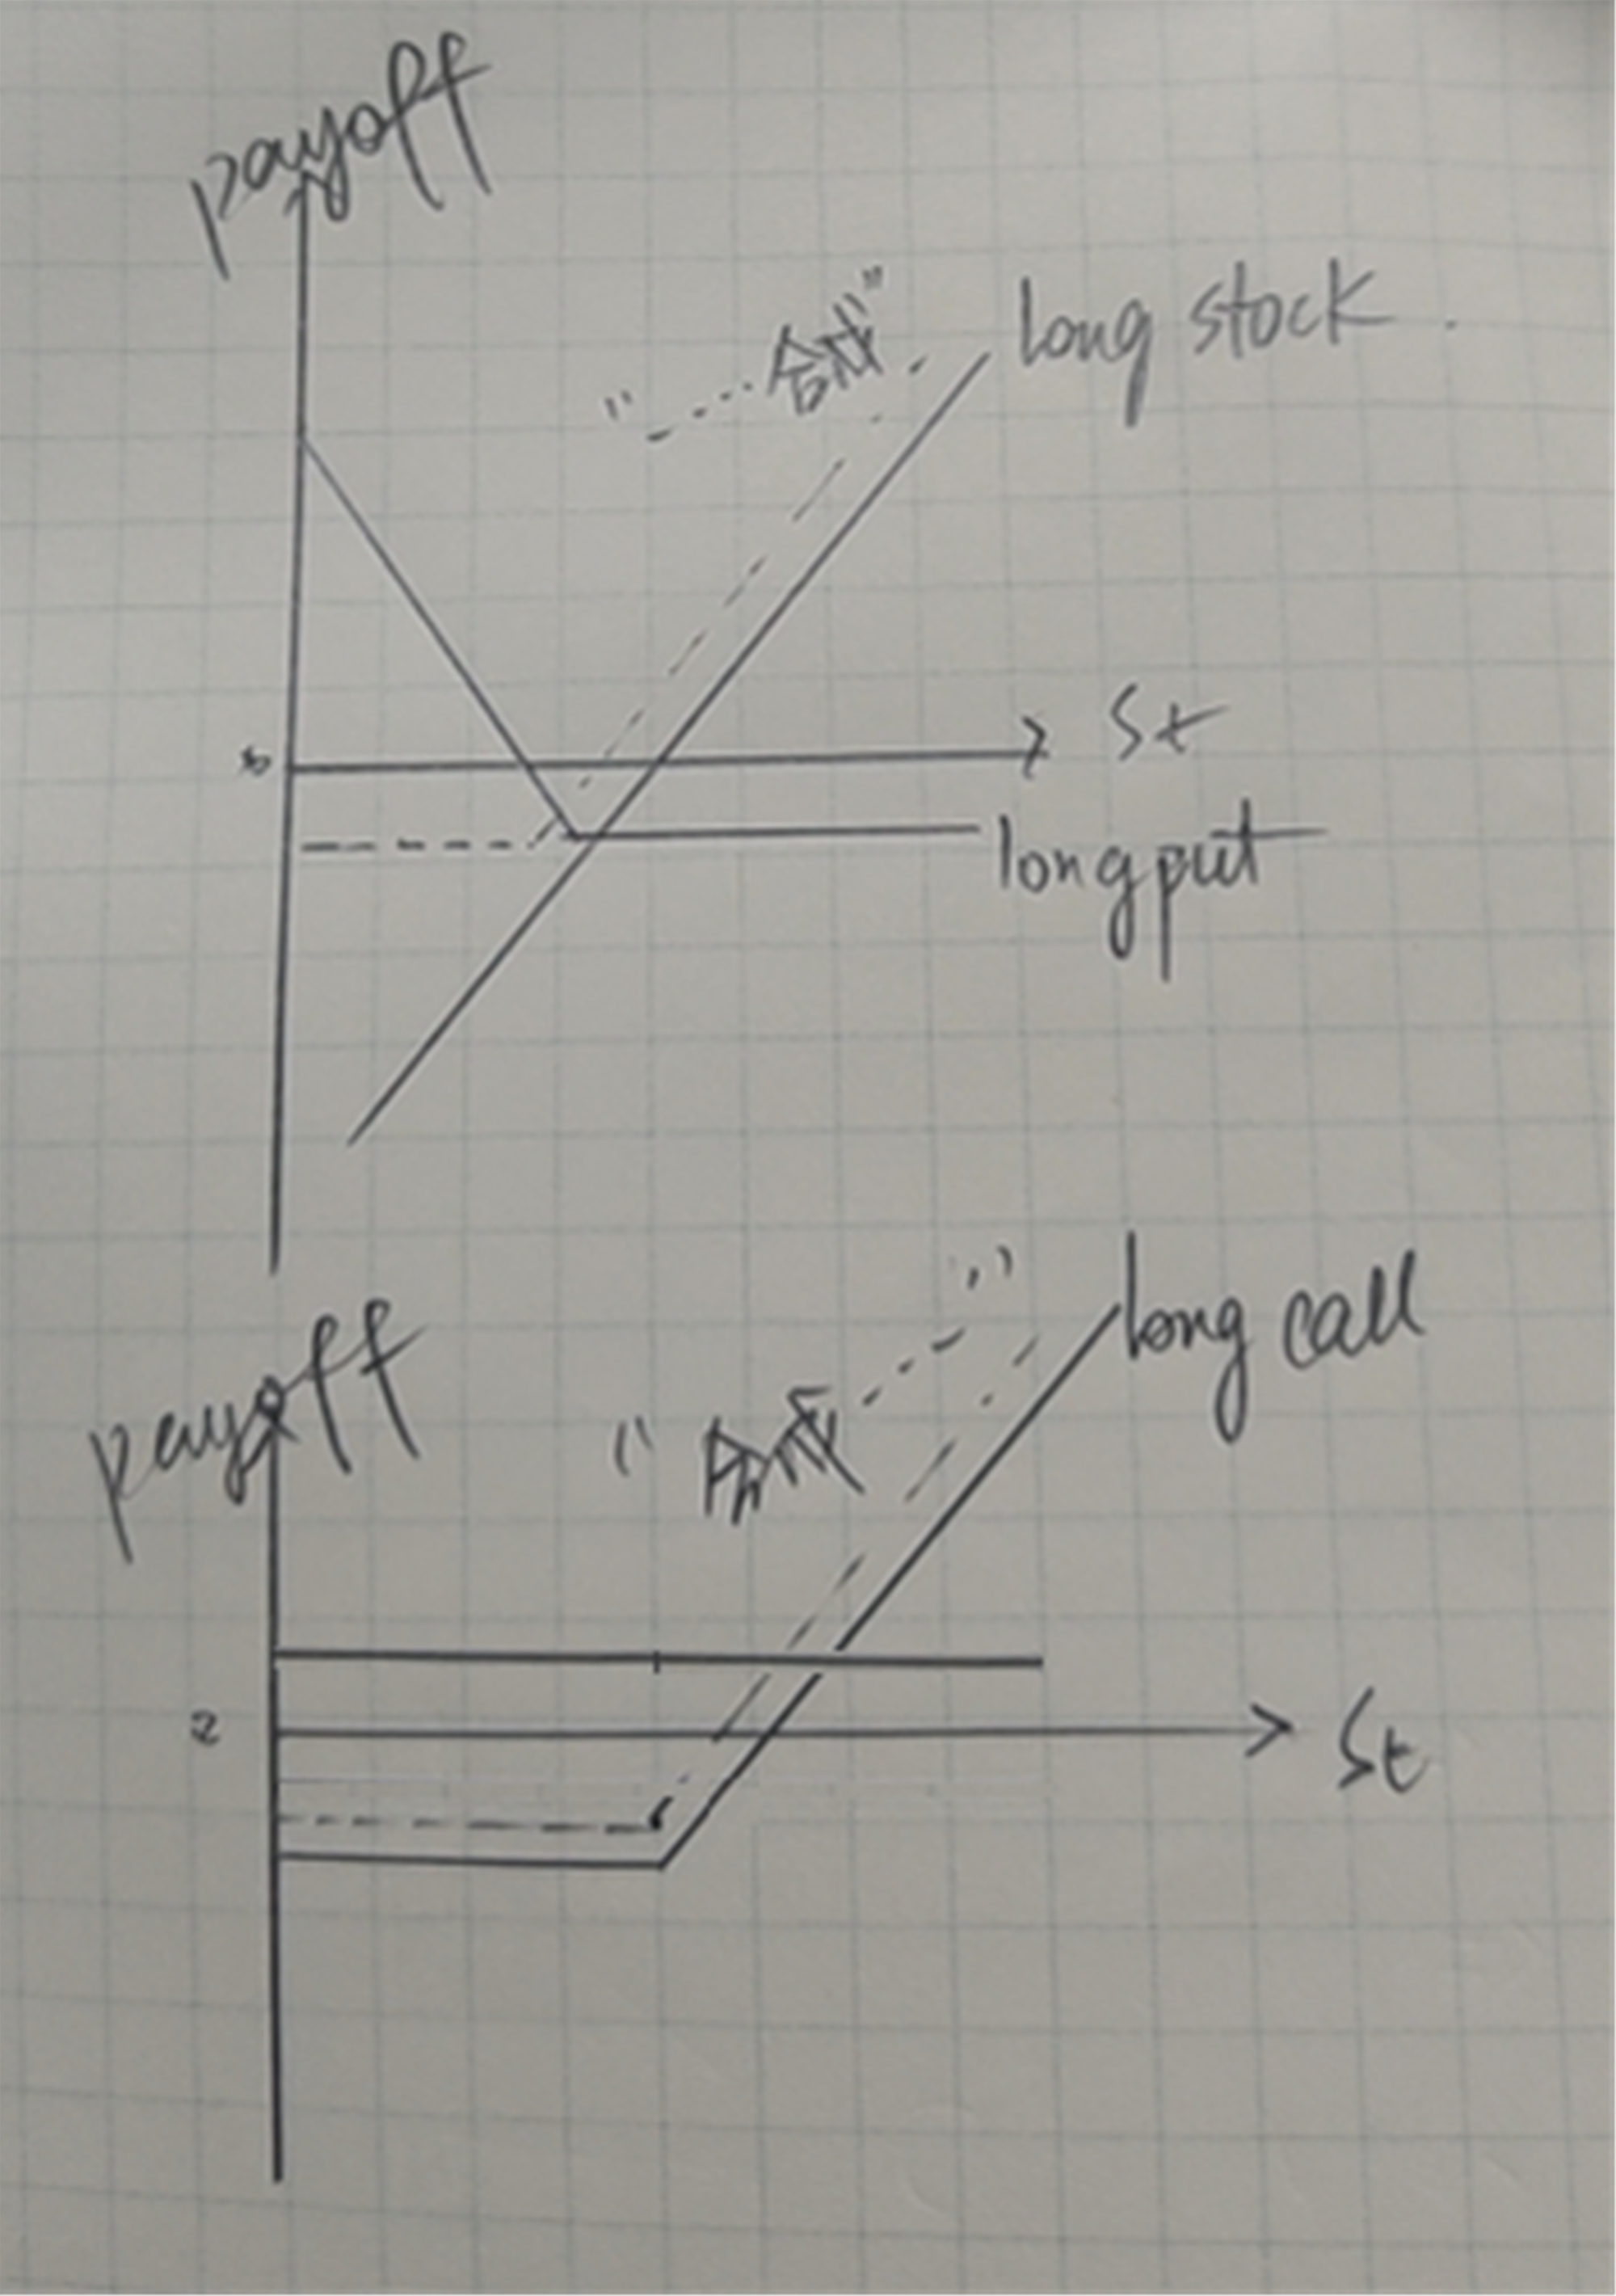 payoff
"---合成"
long stock
St
long put
payoff
"合成---"
long call
St